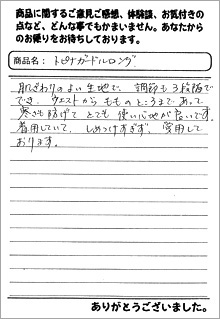 商品に関するご意見ご感想、体験談、お気付きの
点など、どんな事でもかまいません。あなたから
のお便りをお待ちしております。
商品名：トピナガードルロング
肌ざわりのよい生地で、調節も3段階で
でき、ウエストから もものところまであって
寒さも防げて とても 使い心地が良いです。
着用していて、しめつけすぎず、愛用して
おります。
ありがとうございました。